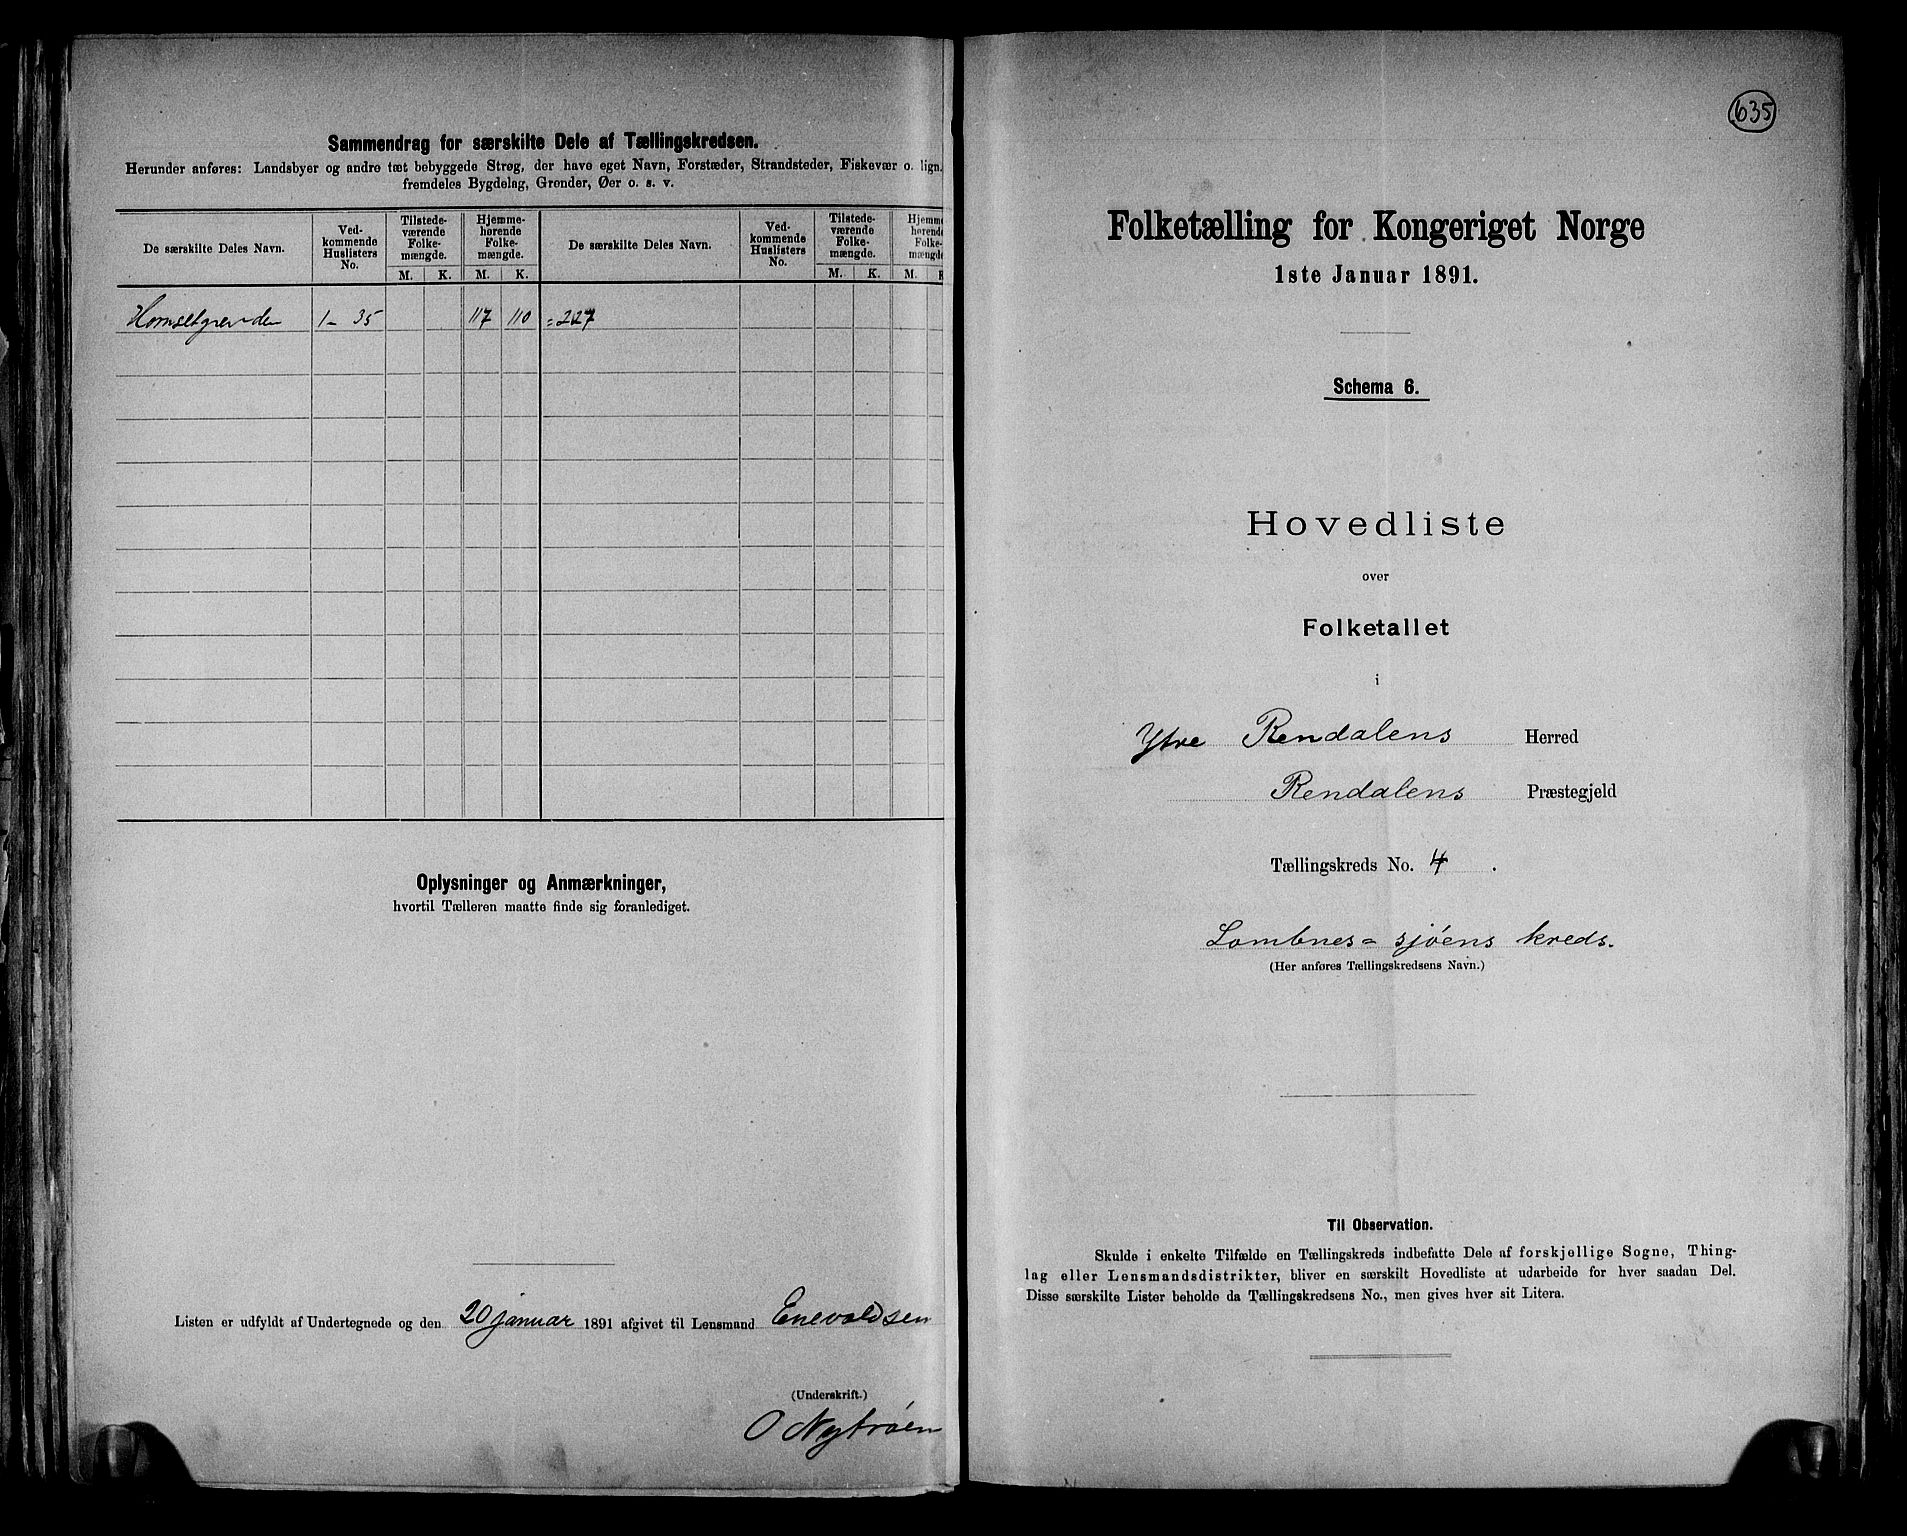 Sammendrag for særskilte Dele af Tællingskredsen.
Herunder anføres: Landsbyer og andre tæt bebyggede Strøg, der have eget Navn, Forstæder, Strandsteder, Fiskevær o. lign.
fremdeles Bygdelag, Grender, Øer o. s. v.
De særskilte Deles Navn.
Ved-
kommende
Huslisters
No.
Tilstede-
værende
Folke-
mængde.
M. K.
Hjemme-
hørende
Folke-
mængde.
M. K.
De særskilte Deles Navn.
Ved-
kommende
Huslisters
No.
Tilstede-
værende
Folke-
mængde.
M. K.
Hjemme
hørende
Folke-
mængde
M.
Hornsetgrenden 1-35 117 110 =227
Oplysninger og Anmærkninger,
hvortil Tælleren maatte finde sig foranlediget.
Listen er udfyldt af Undertegnede og den 20 januar 1891 afgivet til Lensmand Enevoldsen
(Underskrift.)
O Nytrøen
635
Folketælling for Kongeriget Norge
1ste Januar 1891.
Schema 6.
Hovedliste
over
Folketallet
i
Ytre Rendalens Herred
Rendalens Præstegjeld
Tællingskreds No. 4.
Lombnes= sjøens kreds.
(Her anføres Tællingskredsens Navn.)
Til Observation.
Skulde i enkelte Tilfælde en Tællingskreds indbefatte Dele af forskjellige Sogne, Thing-
lag eller Lensmandsdistrikter, bliver en særskilt Hovedliste at udarbeide for hver saadan Del.
Disse særskilte Lister beholde da Tællingskredsens No., men gives hver sit Litera.